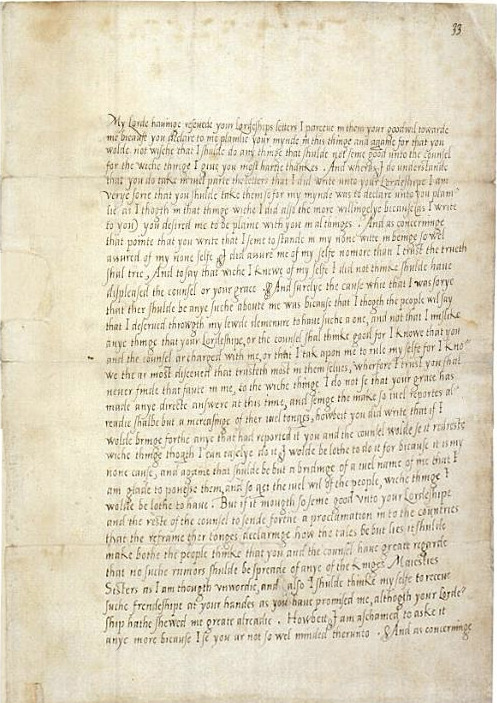 33
My Lorde havinge reseved your Lordeships letters I parceve in them your good wil towarde
me bicause you declare to me plainlie your mynde in this thinge and againe for that you
wolde not wische that I shulde do any thinge that shulde not seme good unto the counsel
for the wiche thinge I give you most hartie thankes. And wheras I do understande
that you do take in ivel parte the letters that I did write unto your Lordeshipe I am
verye sorie that you shulde take them so for my mynde was to declare unto you plain
lie as I thogth in that thinge wiche I did also the more willingelye bicause (as I write
to you) you desired me to be plaine with you in al thinges. And as concerninge
that pointe that you write that I seme to stande in my none witte in beinge so wel
assured of my none selfe I did assure me of my selfe no more than I trust the trueth
shal trie, And to say that wiche I knewe of my selfe I did not thinke shulde have
displeased the counsel or your grace And surelye the cause whie that I was sorye
that ther shulde be anye suche aboute me was bicause that I thogth the people wil say
that I deserved throwgth my lewde demenure to have suche a one, and not that I mislike
anye thinge that your Lordeshipe, or the counsel shal thinke good for I knowe that you
and the counsel ar charged with me, or that I take upon me to rule my selfe for I kno
we the ar most disceved that trusteth most in them selves, wherfore I trust you shal
never finde that faute in me, to the wiche thinge I do not se that your grace has
made anye directe answere at this time, and seinge the make so ivel reportes al
readie shalbe but a increasinge of ther ivel tonges, howbeit you did write that if I
wolde bringe forthe anye that had reported it you and the counsel wolde se it redreste
wiche thinge thogth I can easelye do it I wolde be lothe to do it for bicause it is my
none cause, and againe that shulde be but a bridinge of a ivel name of me that I
am glade to ponesse them, and so get the ivel wil of the people, wiche thinge I
wolde be lothe to have. But if it mougth so seme good unto your Lordeshipe
and the reste of the counsel to sende forthe a proclamation in to the countries
that the refraine ther tonges declaringe how the tales be but lies it shulde
make bothe the people thinke that you and the counsel have greate regarde
that no suche rumors shulde be spreade of anye of the Kinges Maiesties
Sisters as I am though unwordie, and also I shulde thinke my selfe to receve
suche frendeshipe at your handes as you have promised me, althogth your Lorde
ship hathe shewed me greate alreadie. Howbeit I am aschamed to aske it
anye more bicause I se you ar not so wel minded therunto. And as concerninge